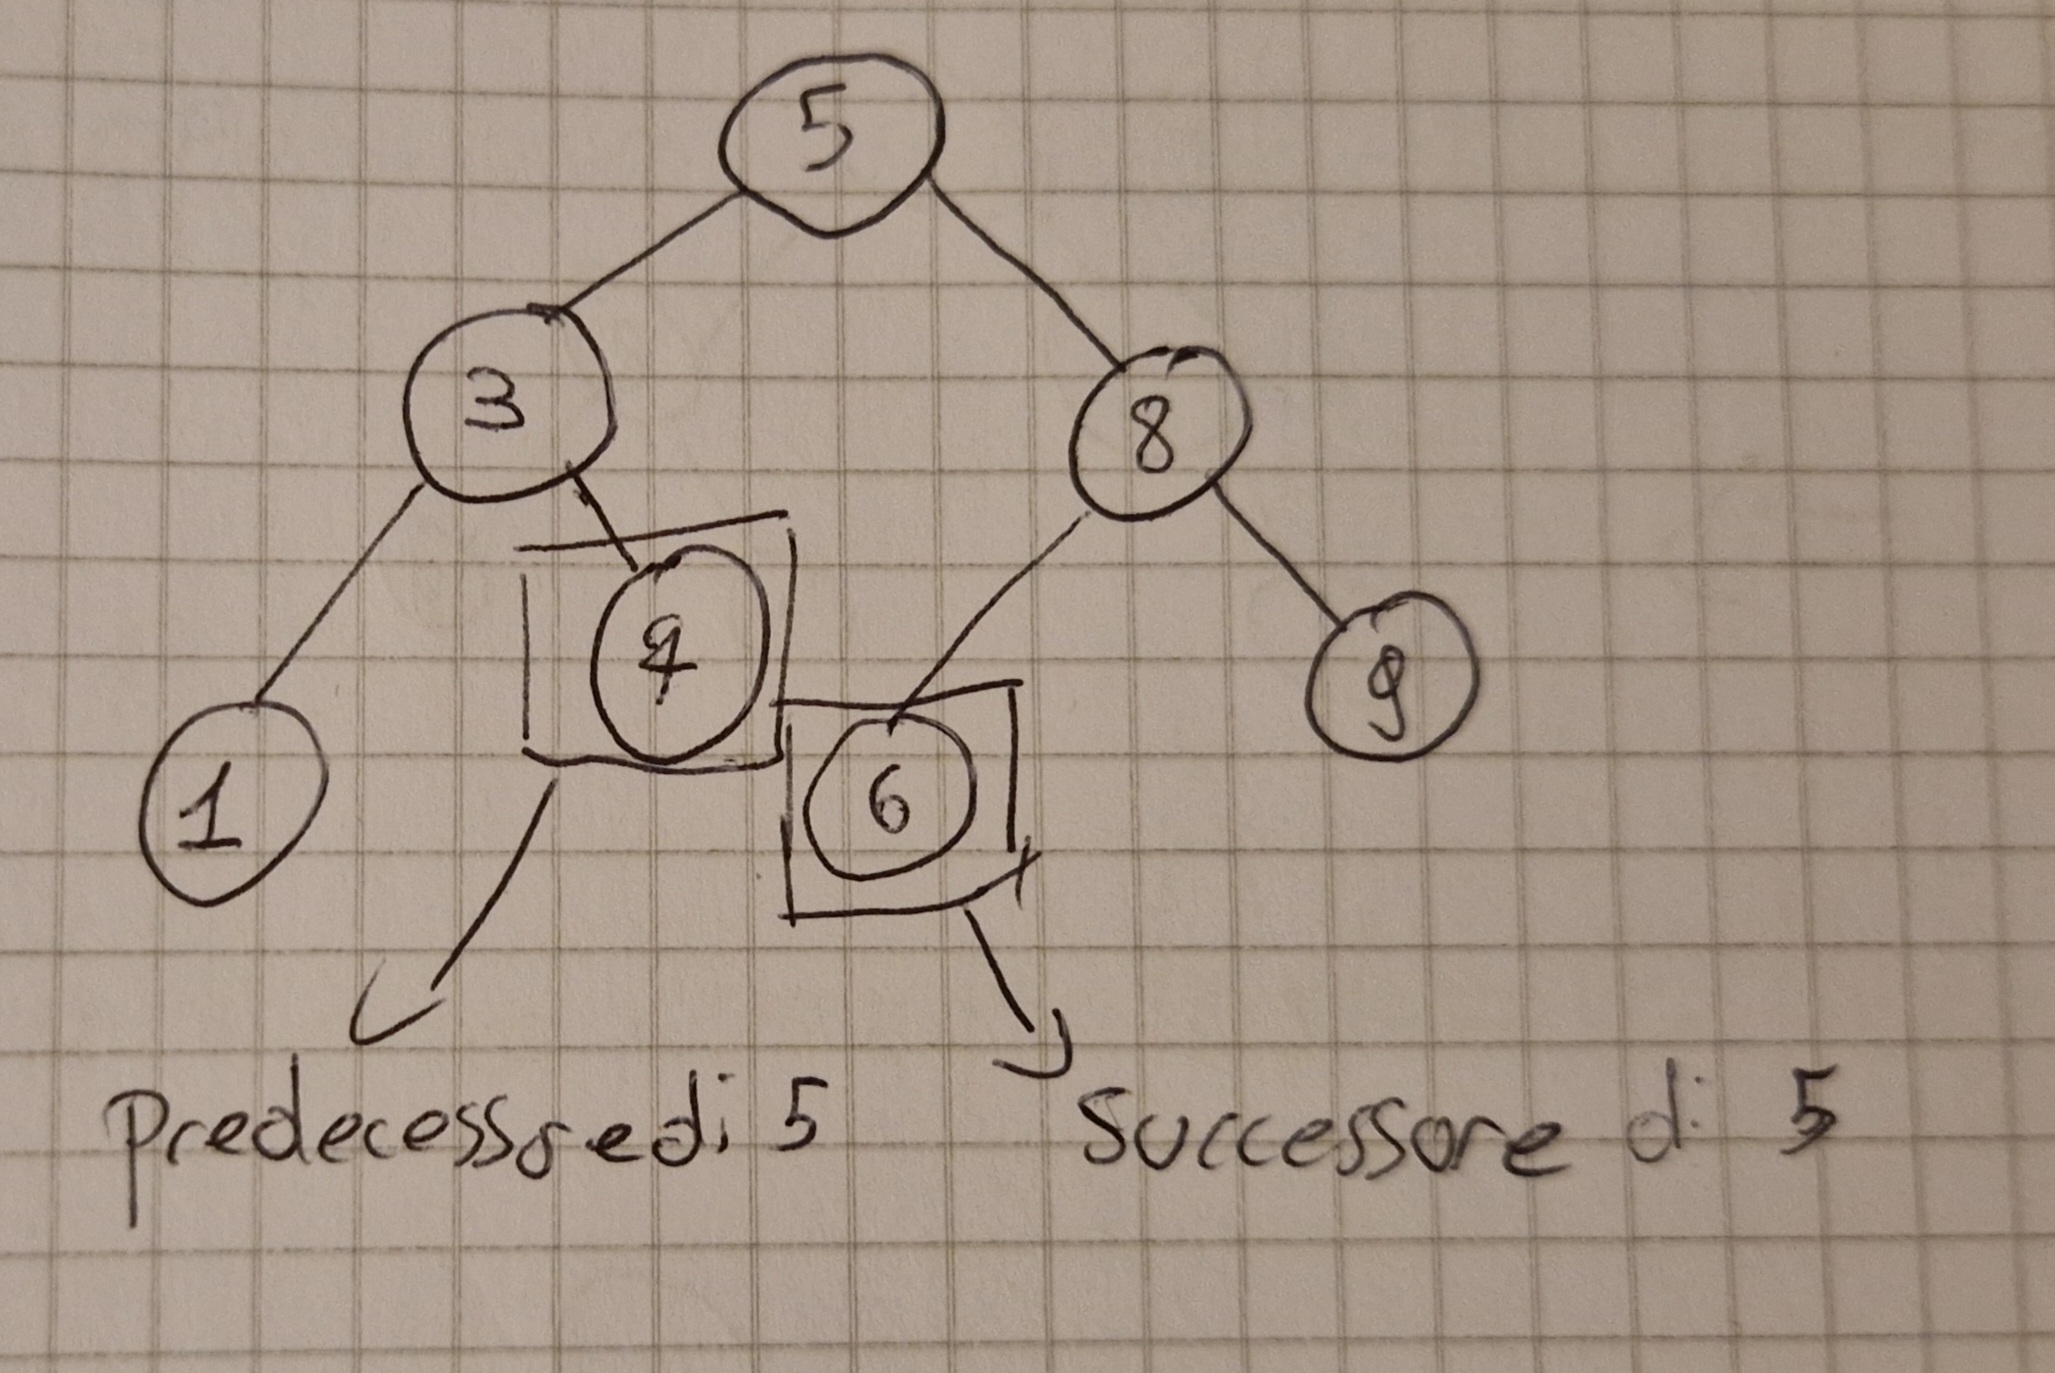 5
3
8
4
9
1
6
Predecessore di 5
Successore di 5